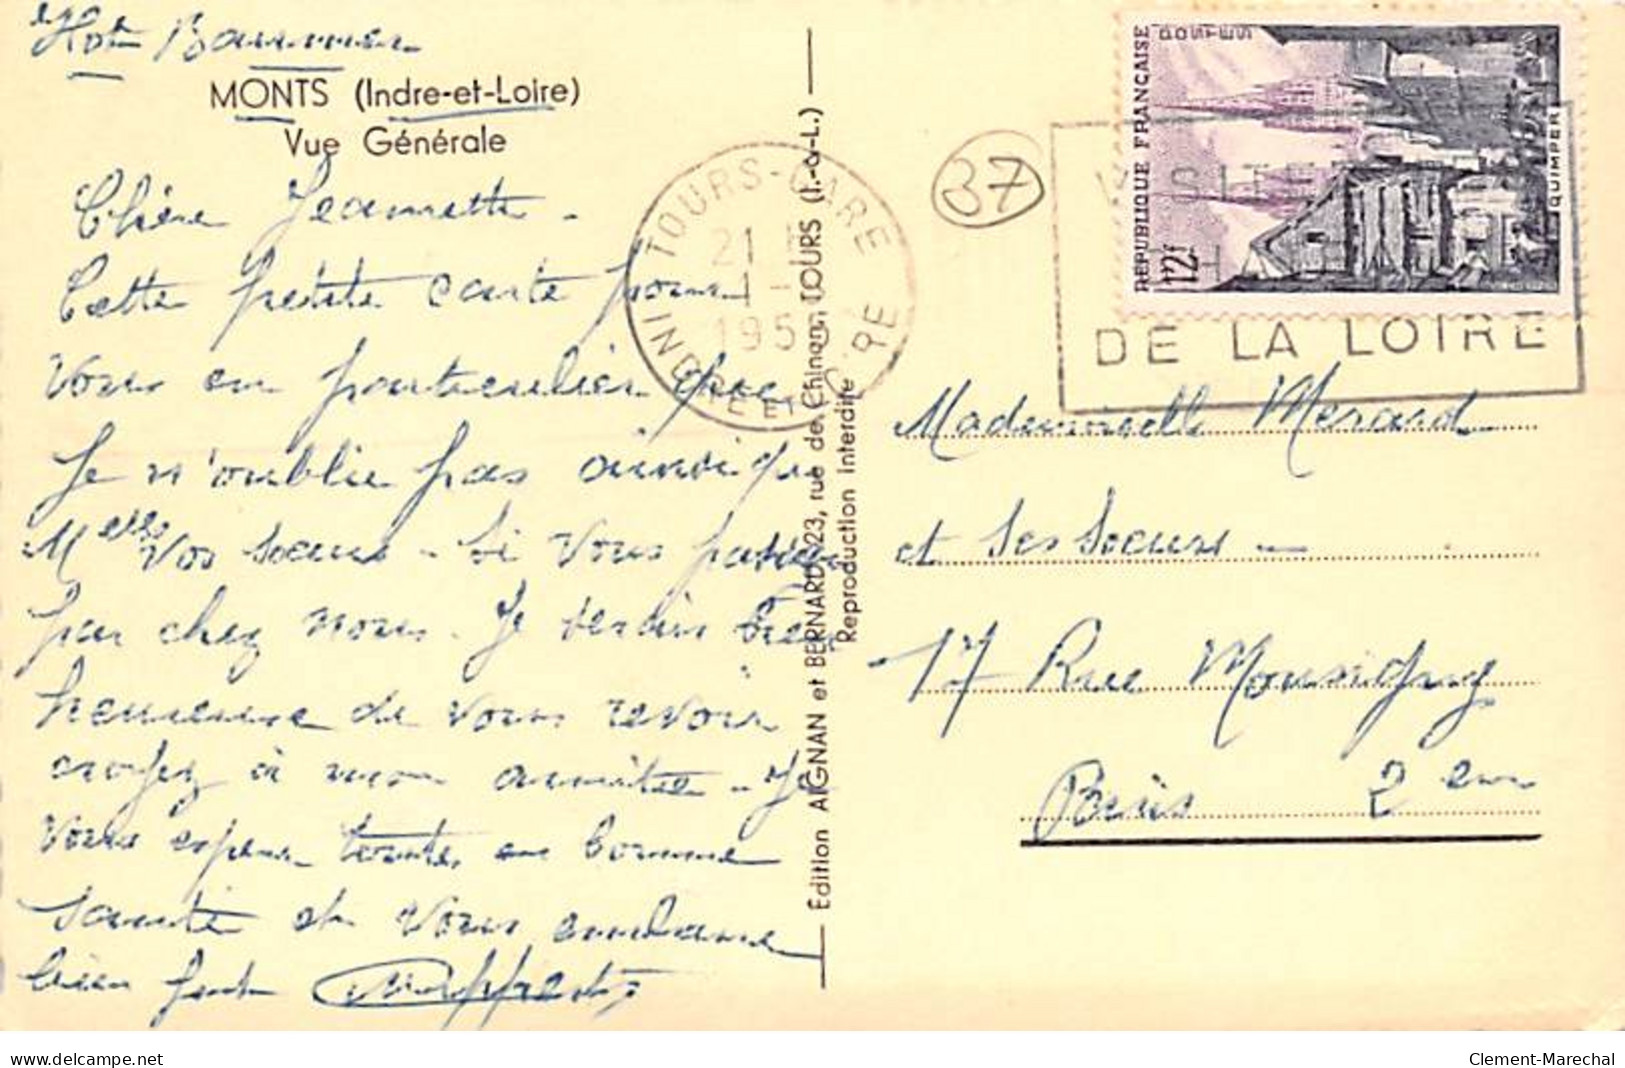 MONTS (Indre-et-Loire)
Vue Générale
Chère Jeannette -
Cette petite carte pour
Vous en particulier que
Je n'oublie pas ainsi que
Melles Vos Soeurs - Si Vous passiez
par chez nous. Je serais bien
heureuse de vous revoir
croyez à mon amitié - Je
Vous espère toutes en bonne
Santé et Vous embrasse
bien fort
Edition AIGNAN et BERNARD, 23, rue de Chinon, TOURS (I.-&-L.)
Reproduction Interdite
TOURS-GARE
21
195
INDRE ET
37
DE LA LOIRE
RÉPUBLIQUE FRANÇAISE
POSTES
12f
QUIMPER
Mademoiselle Merard
et Ses Soeurs -
17 Rue Monsigny
Paris 2em
www.delcampe.net
Clement-Marechal